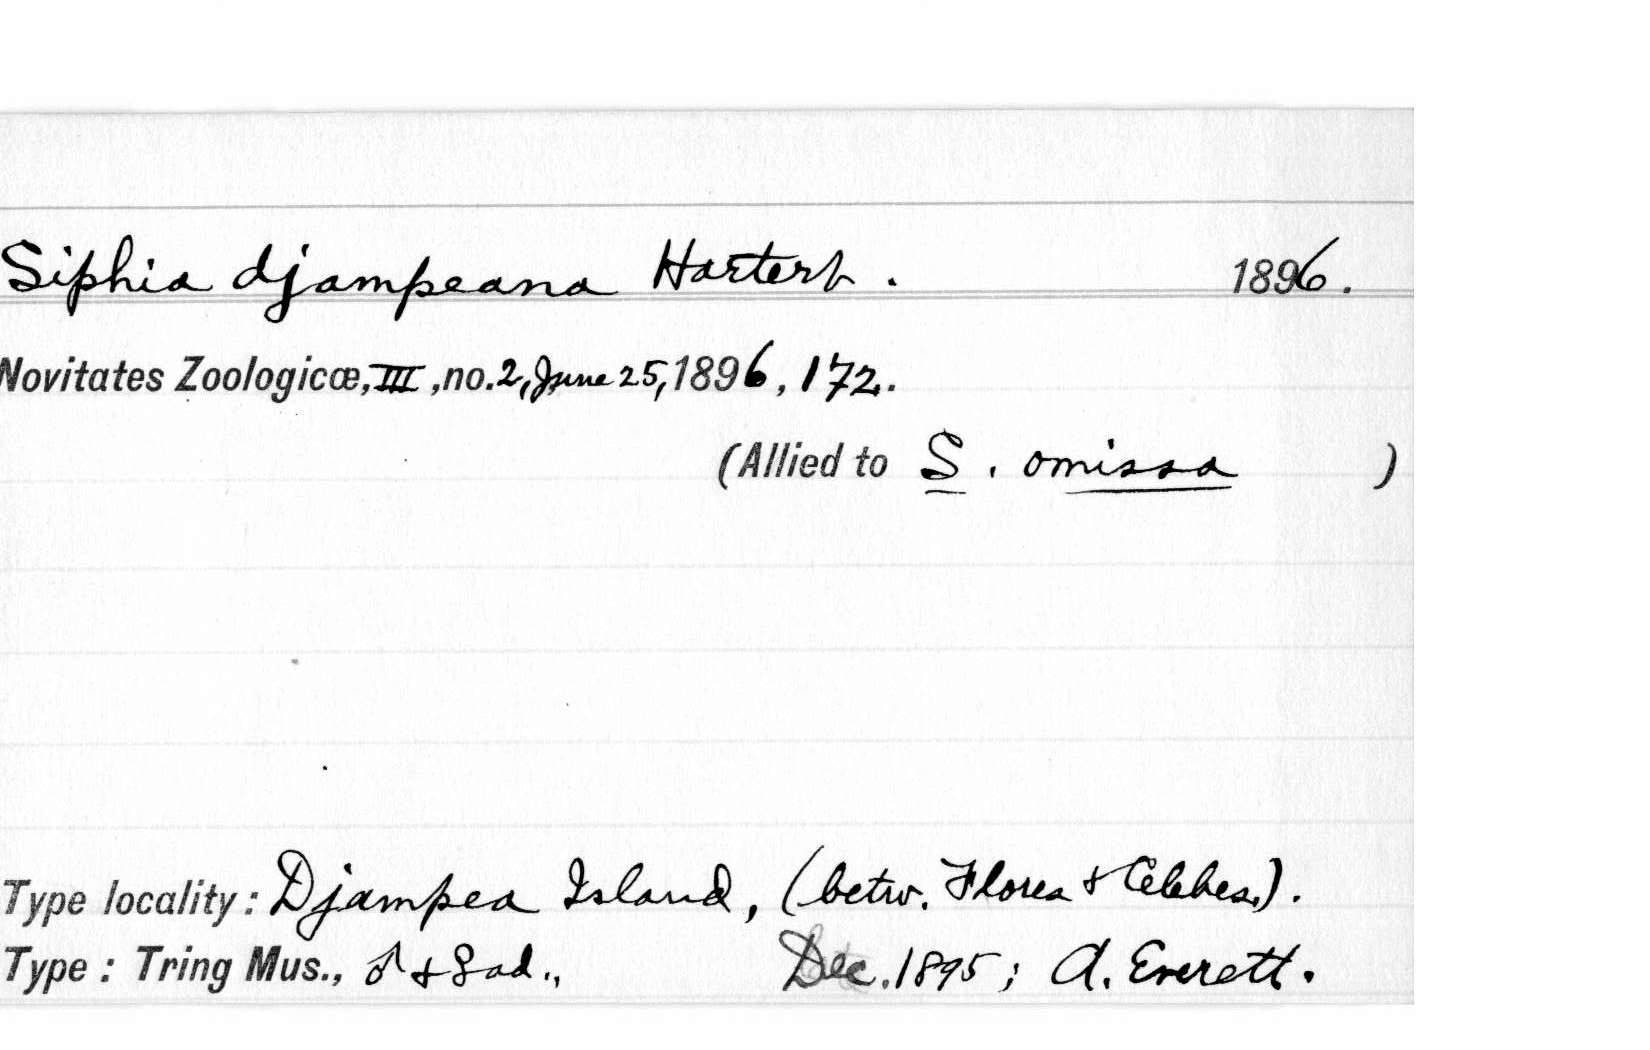 Siphia djampeana Hartert. 1896.
Novitates Zoologicæ, III, no. 2, June 25, 1896, 172.
(Allied to S. omissa )
Type locality: Djampea Island, (betw. Flores & Celebes.).
Type: Tring Mus., ♂ & ♀ ad., Dec. 1895; A. Everett.